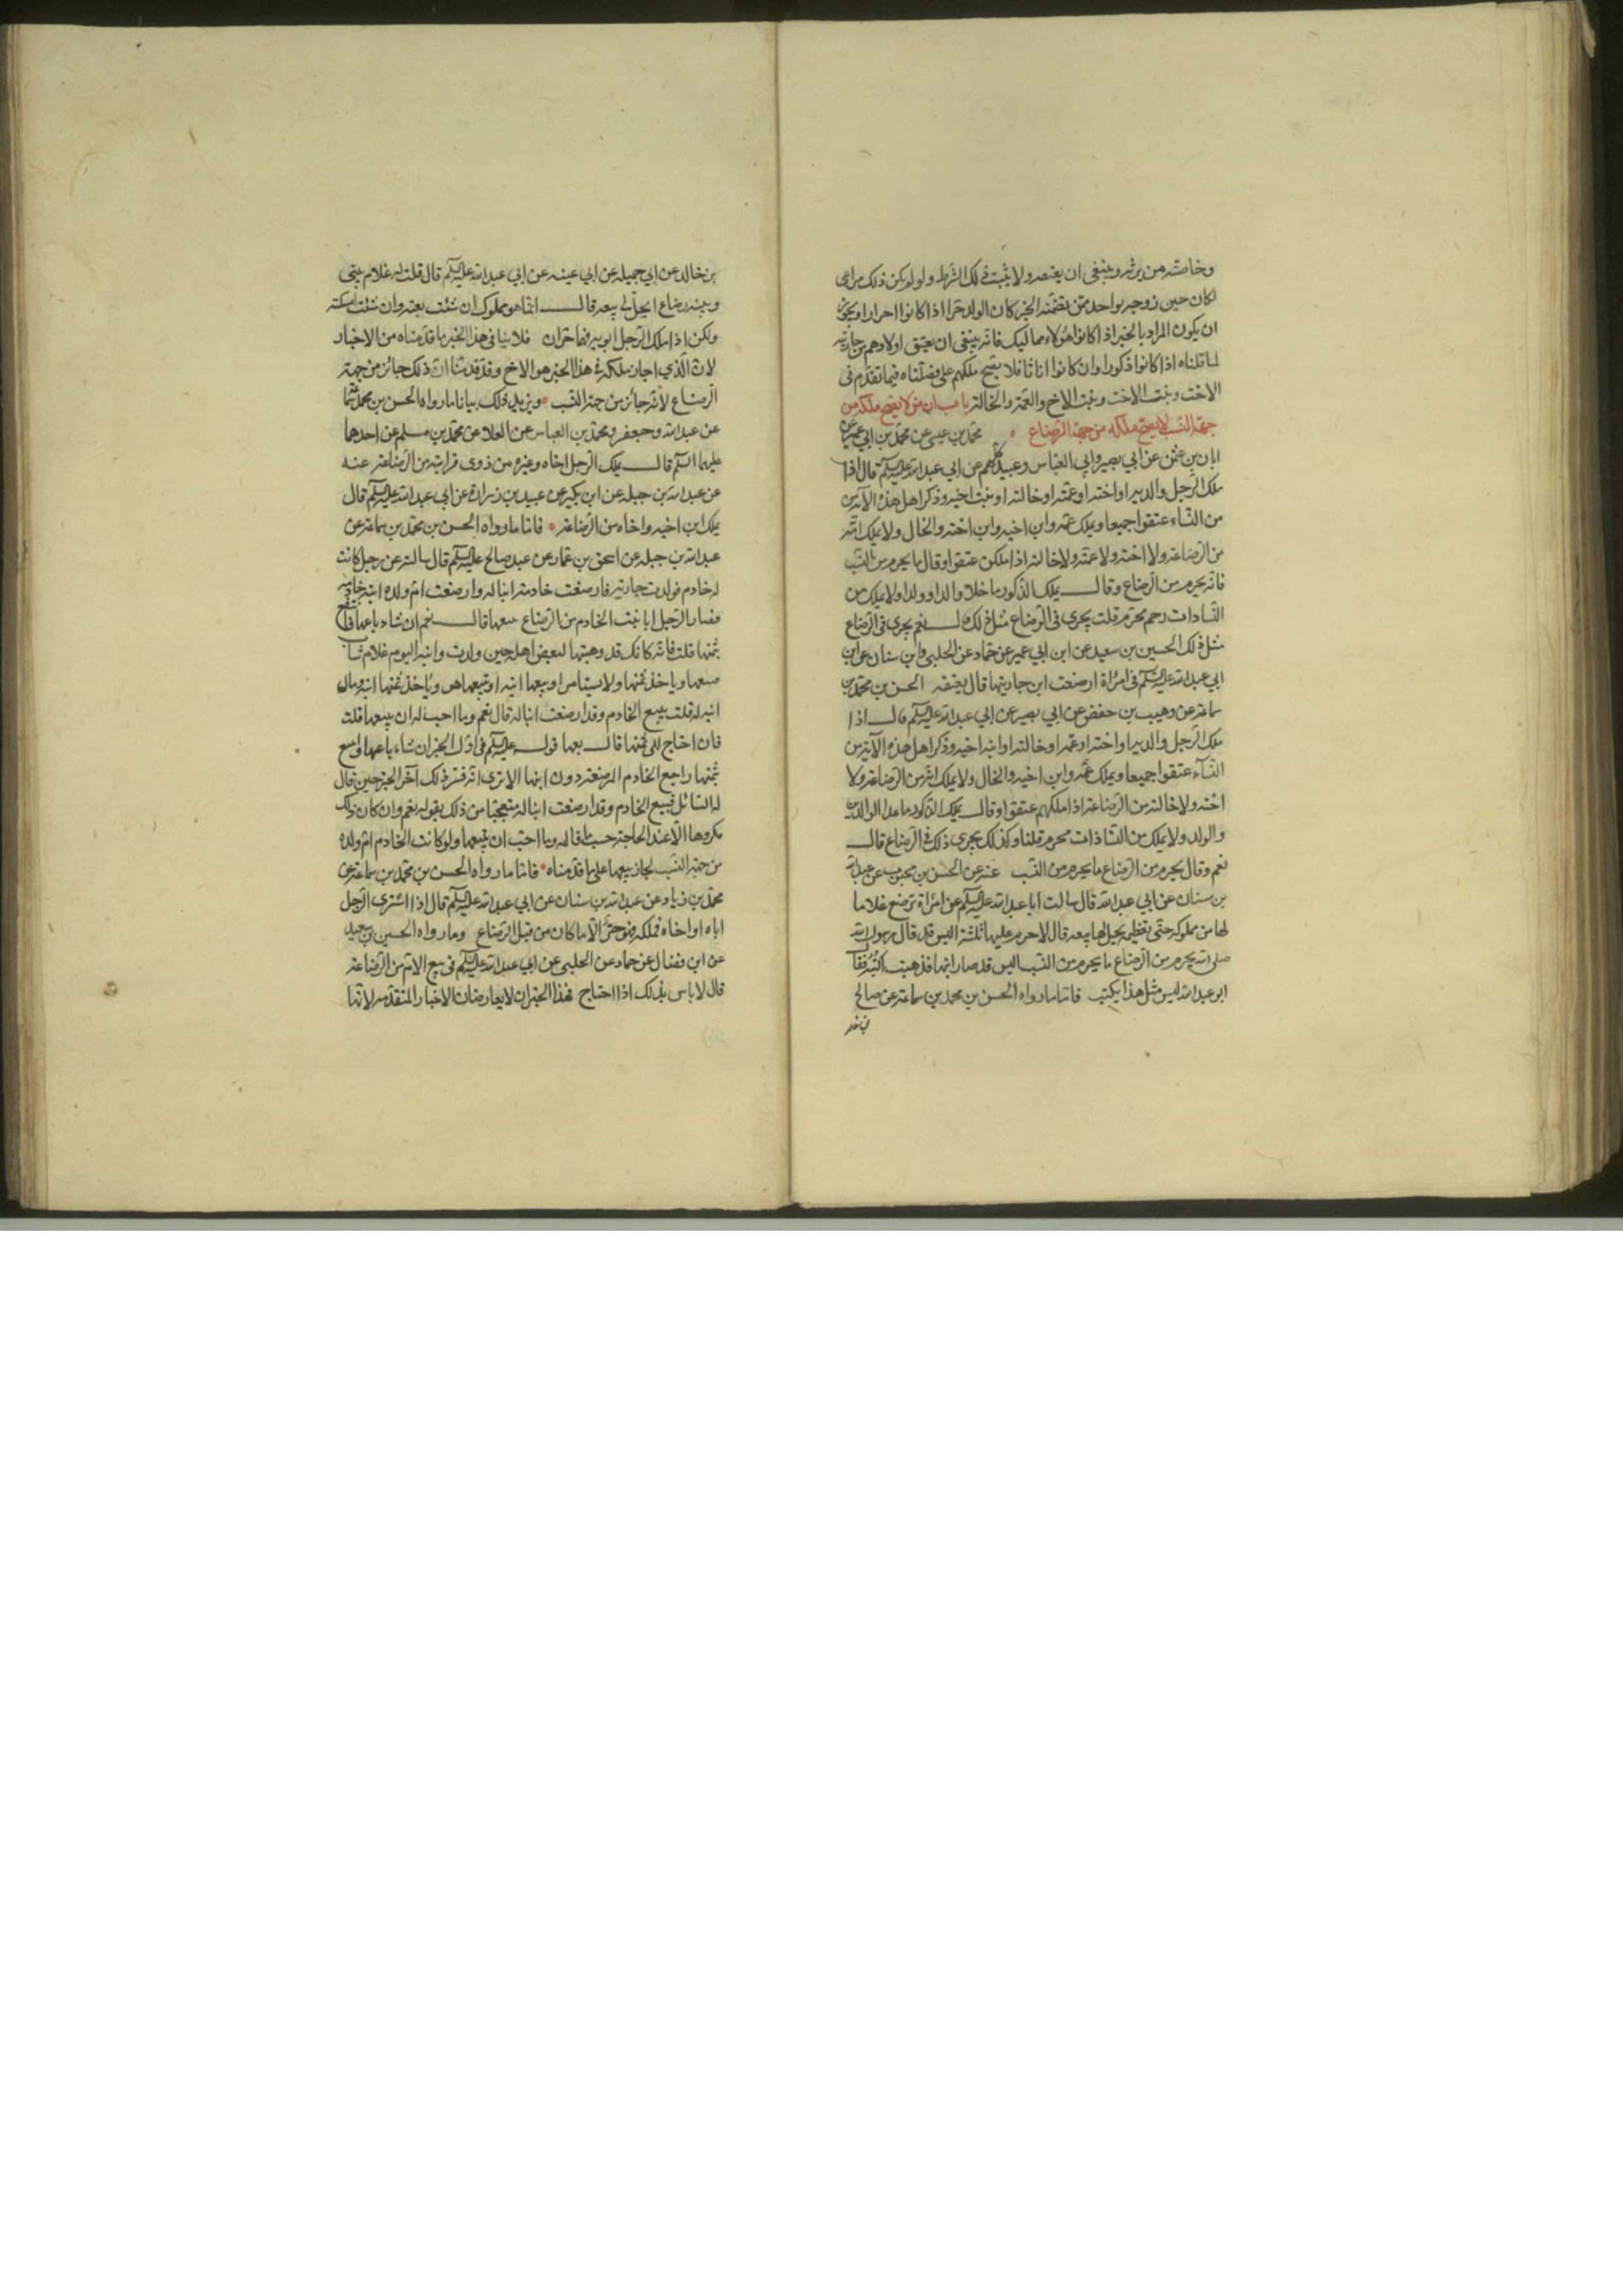 وخاصته من يرثه وينبغي ان يعتصر ولا يثبت ذلك الشرط ولو لم يكن ذلك مراعى
لكان حين زوجه بواحد ممن تضمنه الخبر كان الولد حرا اذا كانوا احرارا ويجوز
ان يكون المراد بالخبر اذا كانوا هؤلاء مماليك فانه ينبغي ان يعتق اولادهم من جاريته
لما قلناه اذا كانوا ذكورا وان كانوا اناثا فلا يصح ملكهم على ما فصلناه فيما تقدم في
الاخت وبنت الاخت وبنت الاخ والعمة والخالة باب ان من لا يصح ملكه من
جهة النسب لا يصح ملكه من جهة الرضاع محمد بن عيسى عن محمد بن ابي عمير عن
ابان بن عثمن عن ابي بصير وابي العباس وعبيد كلهم عن ابي عبد الله عليه السلم قال اذا
ملك الرجل والديه او اخته او عمته او خالته او بنت اخيه وذكر اهل هذه الاية من
النساء عتقوا جميعا ويملك عمه وابن اخيه وابن اخته والخال ولا يملك امه
من الرضاعة ولا اخته ولا عمته ولا خالته اذا ملكن عتقوا وقال ما يحرم من النسب
فانه يحرم من الرضاع وقال يملك الذكور ما خلا والدا وولدا ولا يملك من
النساء ذات رحم محرم قلت يجري في الرضاع مثل ذلك قال نعم يجري في الرضاع
مثل ذلك الحسين بن سعيد عن ابن ابي عمير عن حماد عن الحلبي وابن سنان عن ابن
ابي عبد الله عليه السلم في امراة ارضعت ابن جاريتها قال يعتقه الحسن بن محمد بن
سماعة عن وهيب بن حفص عن ابي بصير عن ابي عبد الله عليه السلم قال اذا
ملك الرجل والديه او اخته او عمته او خالته او ابنة اخيه وذكر اهل هذه الآية من
النسآء عتقوا جميعا ويملك عمه وابن اخيه والخال ولا يملك امه من الرضاعة ولا
اخته ولا خالته من الرضاعة اذا ملكهم عتقوا وقال يملك الذكور ما عدا الوالدين
والولد ولا يملك من النساء ذات محرم قلنا وكذلك يجري ذلك في الرضاع قال
نعم وقال يحرم من الرضاع ما يحرم من النسب عنه عن الحسن بن محبوب عن عبد الله
بن سنان عن ابي عبد الله قال سالت ابا عبد الله عليه السلم عن امراة ترضع غلاما
لها من مملوكه حتى تفطمه يحل لها بيعه قال لا حرم عليها ثمنه اليس قد قال رسول الله
صلى الله يحرم من الرضاع ما يحرم من النسب اليس قد صار ابنها فذهبت اكتبه فقال
ابو عبد الله ليس مثل هذا يكتب فاما ما رواه الحسن بن محمد بن سماعة عن صالح
بن خالد
بن خالد عن ابي جميلة عن ابي عيينه عن ابي عبد الله عليه السلم قال قلت له غلام بيني
وبينه رضاع ايحل لي بيعه قال انما هو مملوك ان شئت بعته وان شئت امسكته
ولكن اذا ملك الرجل ابويه فهما حران فلا ينافي هذا الخبر ما قدمناه من الاخبار
لان الذي اجاز ملكه في هذا الخبر هو الاخ وقد قدمنا ان ذلك جائز من جهة
الرضاع لانه جائز من جهة النسب ويزيد ذلك بيانا ما رواه الحسن بن محمد سماعة
عن عبد الله وجعفر ومحمد بن العباس عن العلا عن محمد بن مسلم عن احدهما
عليهما السلم قال يملك الرجل اخاه وغيره من ذوى قرابته من الرضاعة عنه
عن عبد الله بن جبله عن ابن بكير عن عبيد بن زرارة عن ابي عبد الله عليه السلم قال
يملك ابن اخيه واخاه من الرضاعة فاما ما رواه الحسن بن محمد بن سماعة عن
عبد الله بن جبله عن اسحق بن عمار عن عبد صالح عليه السلم قال سالته عن رجل كانت
له خادم فولدت جاريه فارضعت خادمته ابنا له وارضعت ام ولده ابنة خادمه
فصار الرجل ابا بنت الخادم من الرضاع يبيعها قال نعم ان شاء باعها فانتفع
بثمنها قلت فانه كان قد وهبها لبعض اهله حين ولدت وابنه اليوم غلام شاب
يبيعها وياخذ ثمنها ولا يستامر او يبيعها ابنه او تبيعها هي وياخذ ثمنها ابنه ومال
ابنه له قلت يبيع الخادم وقد ارضعت ابنا له قال نعم وما احب له ان يبيعها قلت
فان احتاج الى ثمنها قال يبيعها قوله عليه السلم في اول الخبر ان شاء باعها وانتفع
بثمنها راجع الخادم المرضعة دون ابنها الا ترى انه فسر ذلك آخر الخبر حين قال
له السائل فيبيع الخادم وقد ارضعت ابنا له متعجبا من ذلك بقوله نعم وان كان ذلك
مكروها الا عند الحاجة حسب ما قاله وما احب ان يبيعها ولو كانت الخادم ام ولده
من جهة النسب لجاز بيعها على ما قدمناه فاما ما رواه الحسن بن محمد بن سماعة عن
محمد بن زياد عن عبد الله بن سنان عن ابي عبد الله عليه السلم قال اذا اشترى الرجل
اباه او اخاه فملكه فهو حر الا ما كان من قبل الرضاع وما رواه الحسين بن سعيد
عن ابن فضال عن حماد عن الحلبي عن ابي عبد الله عليه السلم في بيع الام من الرضاعة
قال لا باس بذلك اذا احتاج فهذا الخبران لا يعارضان الاخبار المتقدمه لانها